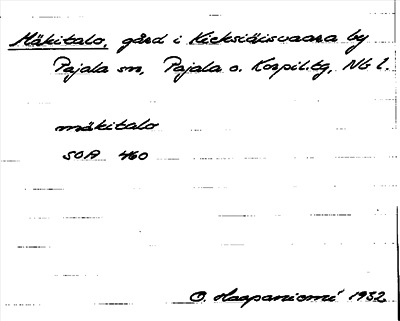 Mäkitalo, gård i Kieksiäisvaara by
Pajala sn, Pajala o. Korpil. tg, Nb l.
mäkitalo
SOA 460
O. Haapaniemi 1932